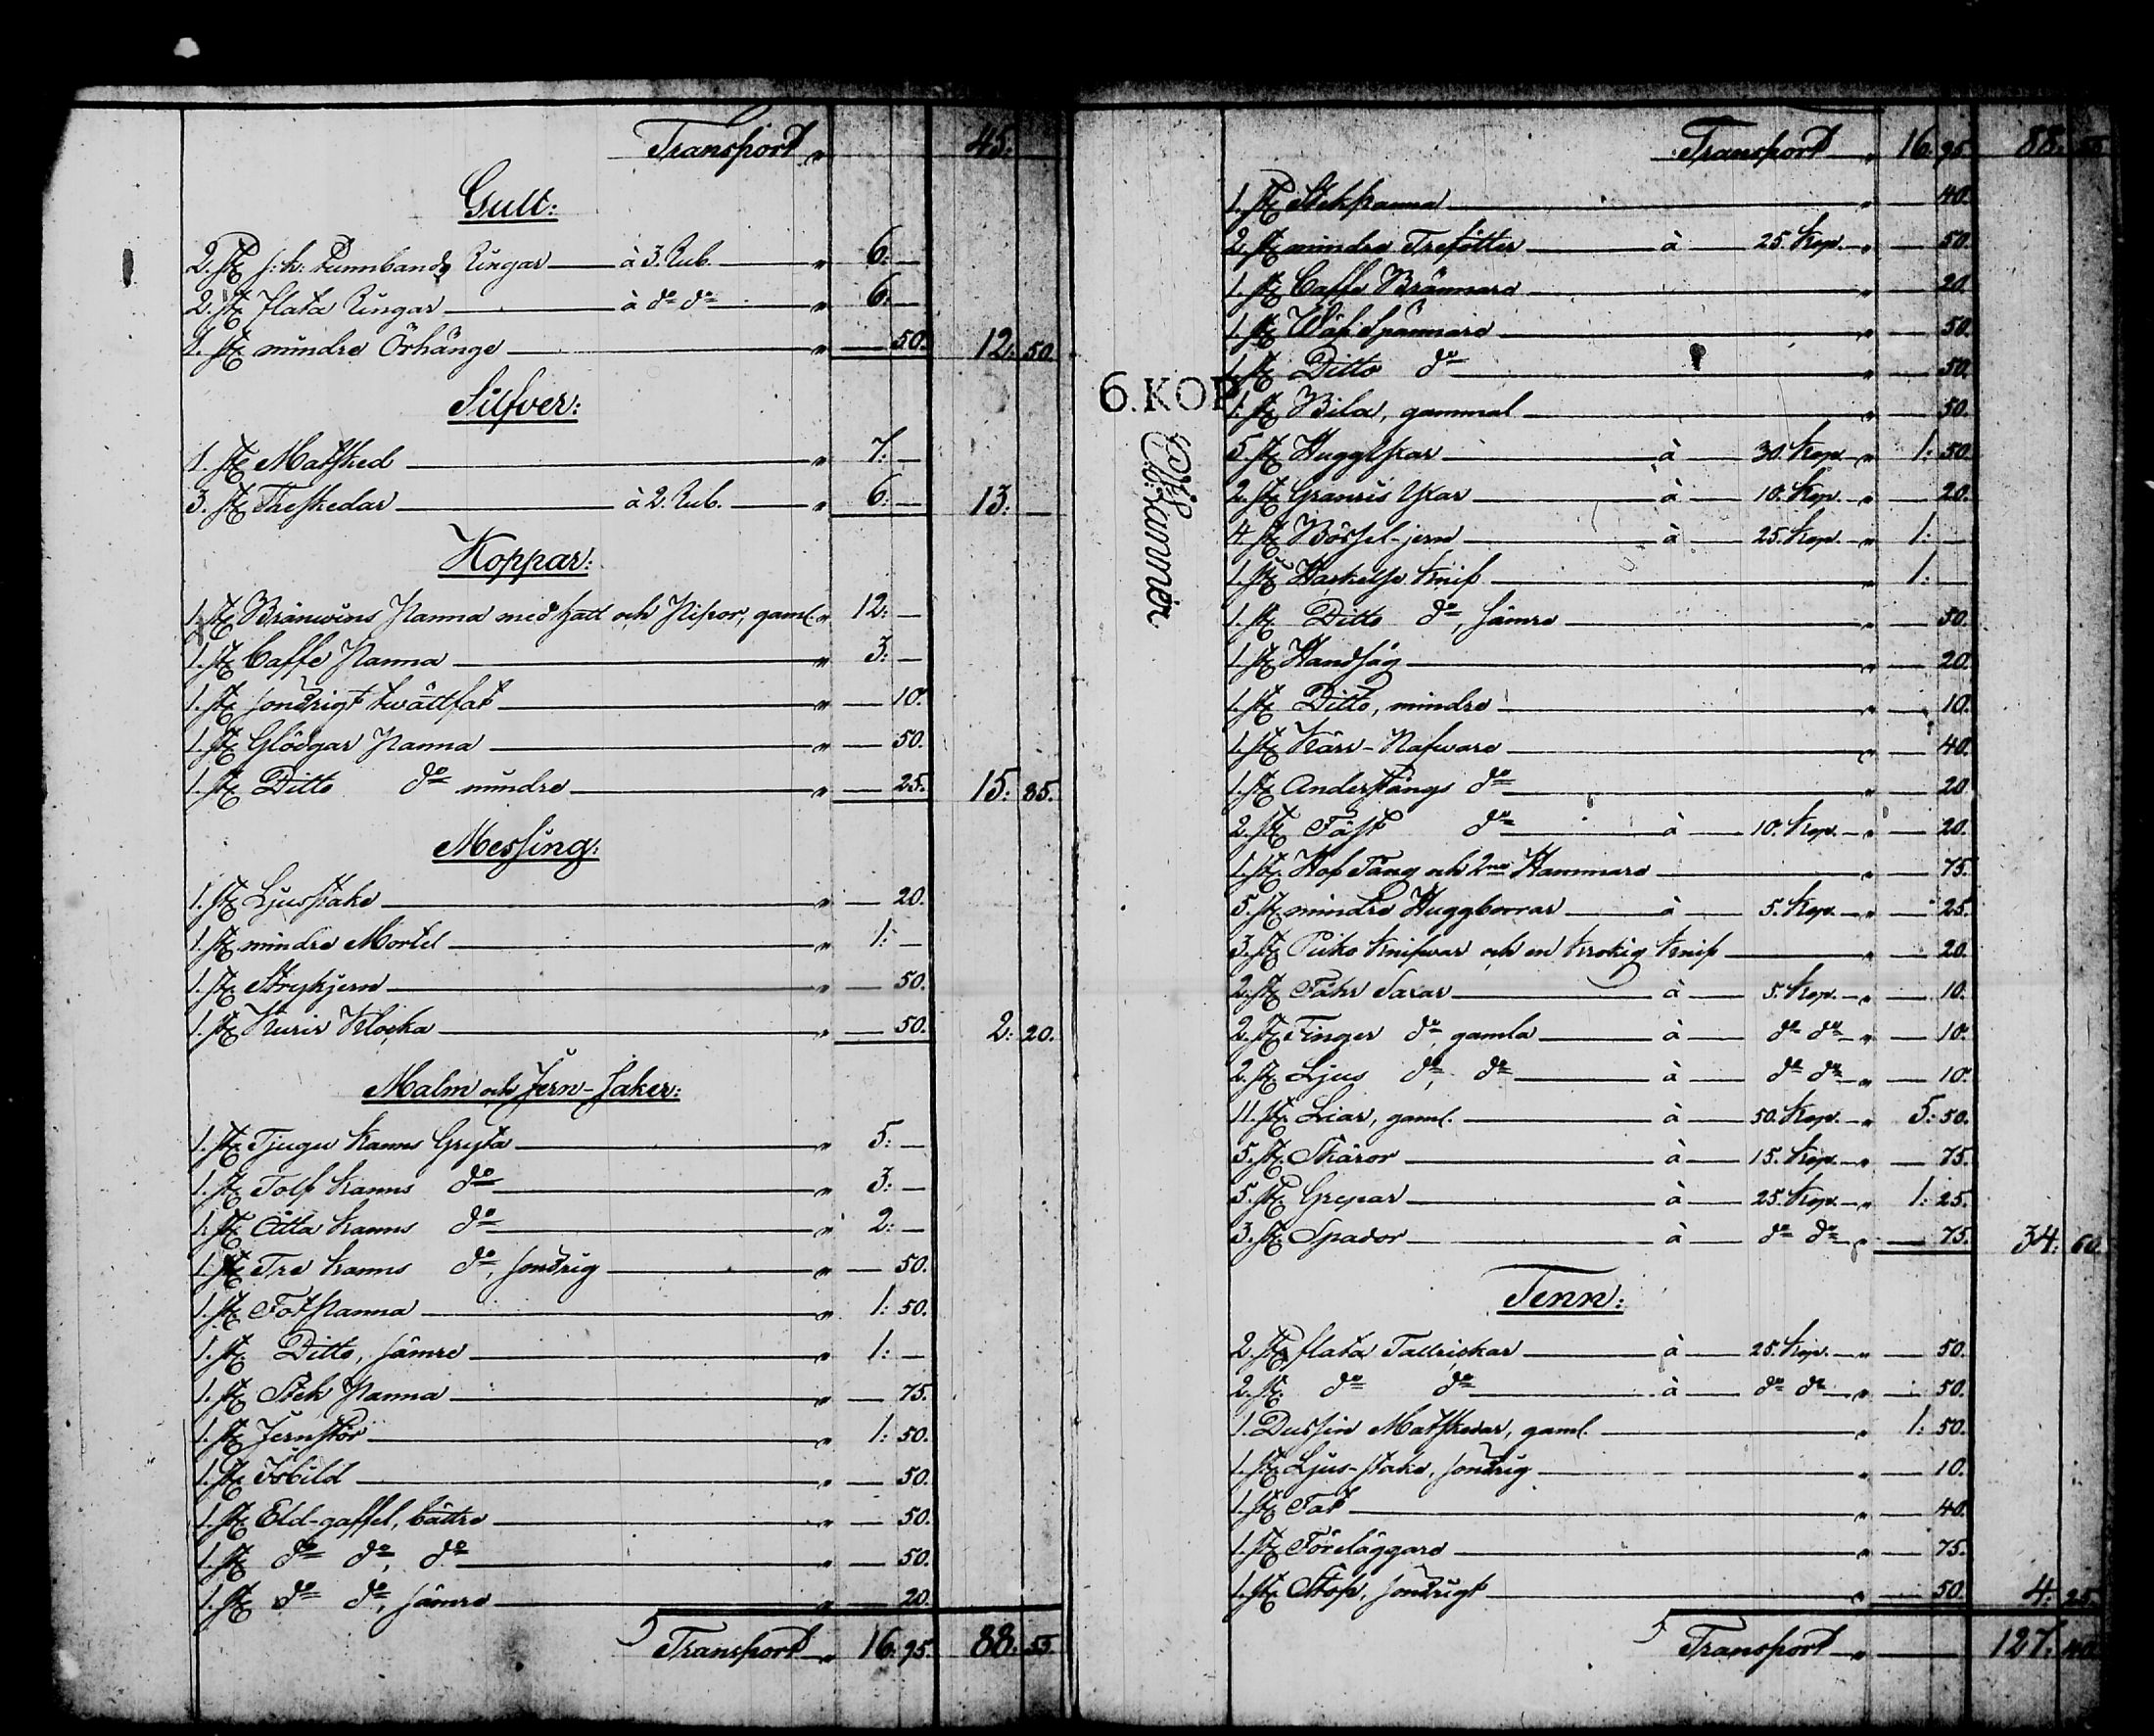 Transport " 45: —
Gult:
2. St: s: k: Punnbands Ringar — à 3. Rub. — " 6: —
2. St: flata Ringar — à do do — " 6: —
1. St: mindre Örhänge — " — 50. 12: 50.
Silfver:
1. St: Matsked — " 7: —
3. St: Theskedar — à 2. Rub. — " 6: — 13: —
Koppar:
1. St: Bränwins Panna med hatt och Pipor, gaml. " 12: —
1. St: Caffe Panna — " 3: —
1. St: sondrigt twättfat — " — 10.
1. St: Glödgar Panna — " — 50.
1. St: Ditto do mindre — " — 25. 15: 85.
Messing:
1. St: Ljusstake — " — 20.
1. St: mindre Mortel — " 1: —
1. St: Strykjern — " — 50.
1. St: Kurir Klocka — " — 50. 2: 20.
Malm och Jern-saker:
1. St: Tjugu Kanns Gryta — " 5: —
1. St: Tolf Kanns do — " 3: —
1. St: Åtta Kanns do — " 2: —
1. St: Tre Kanns do, sondrig — " — 50.
1. St: Fotpanna — " 1: 50.
1. St: Ditto, sämre — " 1: —
1. St: Stek Panna — " — 75.
1. St: Jernstör — " 1: 50.
1. St: Isbild — " — 50.
1. St: Eld-gaffel, bättre — " — 50.
1. St: do do, do — " — 50.
1. St: do do, sämre — " — 20.
Transport — " 16: 95. 88: 55.
6. KOP
Transport — " 16: 95. 88: 55.
1. St: Stekpanna — " — 40.
2. St: mindre Trefötter — à — 25. Kop. — " — 50.
1. St: Caffe Brännare — " — 20.
1. St: Wäf Spännare — " — 50.
1. St: Ditto do — " — 50.
1. St: Bila, gammal — " — 50.
5. St: Huggyxar — à — 30. Kop. — " 1: 50.
2. St: Granris Yxar — à — 10. Kop. — " — 20.
4. St: Bössel-jern — à — 25. Kop. — " 1: —
1. St: Hackelse Knif — " 1: —
1. St: Ditto do, sämre — " — 50.
1. St: Handsåg — " — 20.
1. St: Ditto, mindre — " — 10.
1. St: Kärr-Nafware — " — 40.
1. St: Anderstångs do — " — 20.
2. St: Fäst do — à — 10. Kop. — " — 20.
1. St: Hof Tång och 2ne Hammare — " — 75.
5. St: mindre Huggborrar — à — 5. Kop. — " — 25.
3. St: Puko Knifwar och en krokig Knif — " — 20.
2. St: Fåhr Saxar — à — 5. Kop. — " — 10.
2. St: Finger do, gamla — à — do do — " — 10.
2. St: Ljus do, do — à — do do — " — 10.
11. St: Liar, gaml. — à — 50. Kop. — " 5: 50.
5. St: Skäror — à — 15. Kop. — " — 75.
5. St: Grepar — à — 25. Kop. — " 1: 25.
3. St: Spador — à — do do — " — 75. 34: 60.
Tenn:
2. St: flata Tallrickar — à — 25. Kop. — " — 50.
2. St: do do — à — do do — " — 50.
1. Dussin Matskedar, gaml. — " 1: 50.
1. St: Ljus-stake, sondrig — " — 10.
1. St: Fat — " — 40.
1. St: Föreläggare — " — 75.
1. St: Stop, sondrigt — " — 50. 4: 25.
Transport — " — 127: 40.